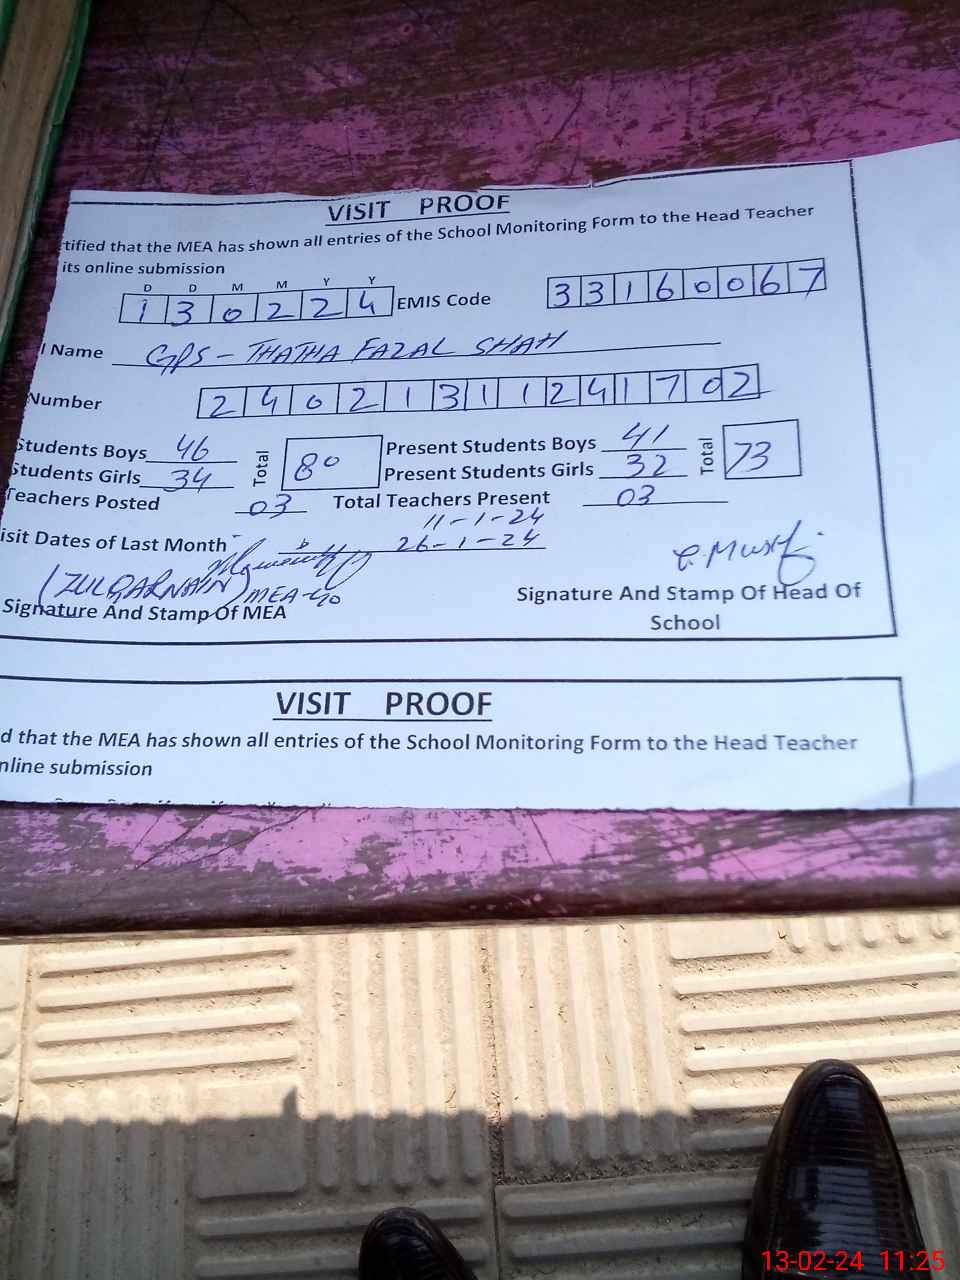 VISIT PROOF
tified that the MEA has shown all entries of the School Monitoring Form to the Head Teacher
its online submission
D D M M Y Y
130224 EMIS Code 33160067
l Name GPS - THATHA FAZAL SHAH
Number 24021311241702
Students Boys 46 Total 80 Present Students Boys 41 Total 73
Students Girls 34 Present Students Girls 32
Teachers Posted 03 Total Teachers Present 03
11-1-24
isit Dates of Last Month 26-1-24
(ZULQARNAIN) MEA-40
Signature And Stamp Of MEA
Signature And Stamp Of Head Of
School
VISIT PROOF
d that the MEA has shown all entries of the School Monitoring Form to the Head Teacher
nline submission
13-02-24 11:25